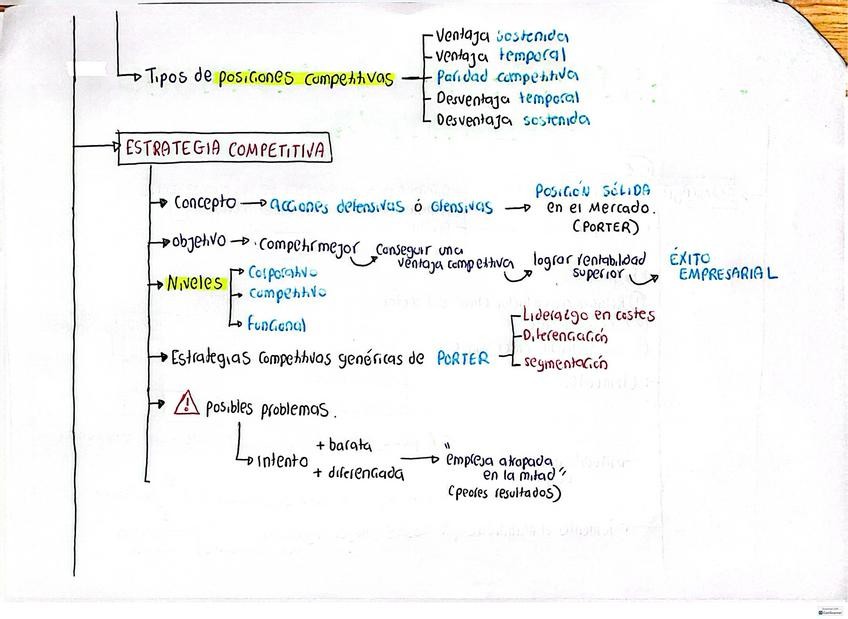 Ventaja sostenida
Ventaja temporal
Tipos de posiciones competitivas
Paridad competitiva
Desventaja temporal
Desventaja sostenida
ESTRATEGIA COMPETITIVA
Concepto acciones defensivas ó ofensivas
POSICIÓN SÓLIDA
en el Mercado.
(PORTER)
objetivo competir mejor
Conseguir una
ventaja competitiva
lograr rentabilidad
superior
ÉXITO
EMPRESARIAL
Niveles
Corporativo
Competitivo
Funcional
Estrategias Competitivas genéricas de PORTER
Liderazgo en costes
Diferenciación
segmentación
posibles problemas.
Intento
+ barata
+ diferenciada
"empresa atrapada
en la mitad"
(peores resultados)